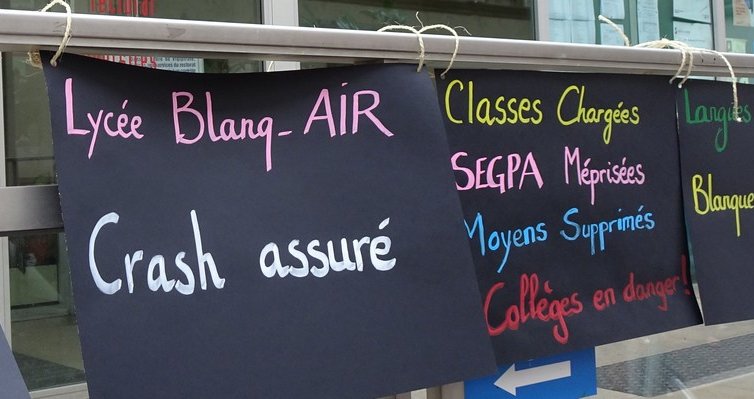 Lycée Blanq-AIR
Crash assuré
Classes Chargées
SEGPA Méprisées
Moyens Supprimés
Collèges en danger!
Langues
Blanque